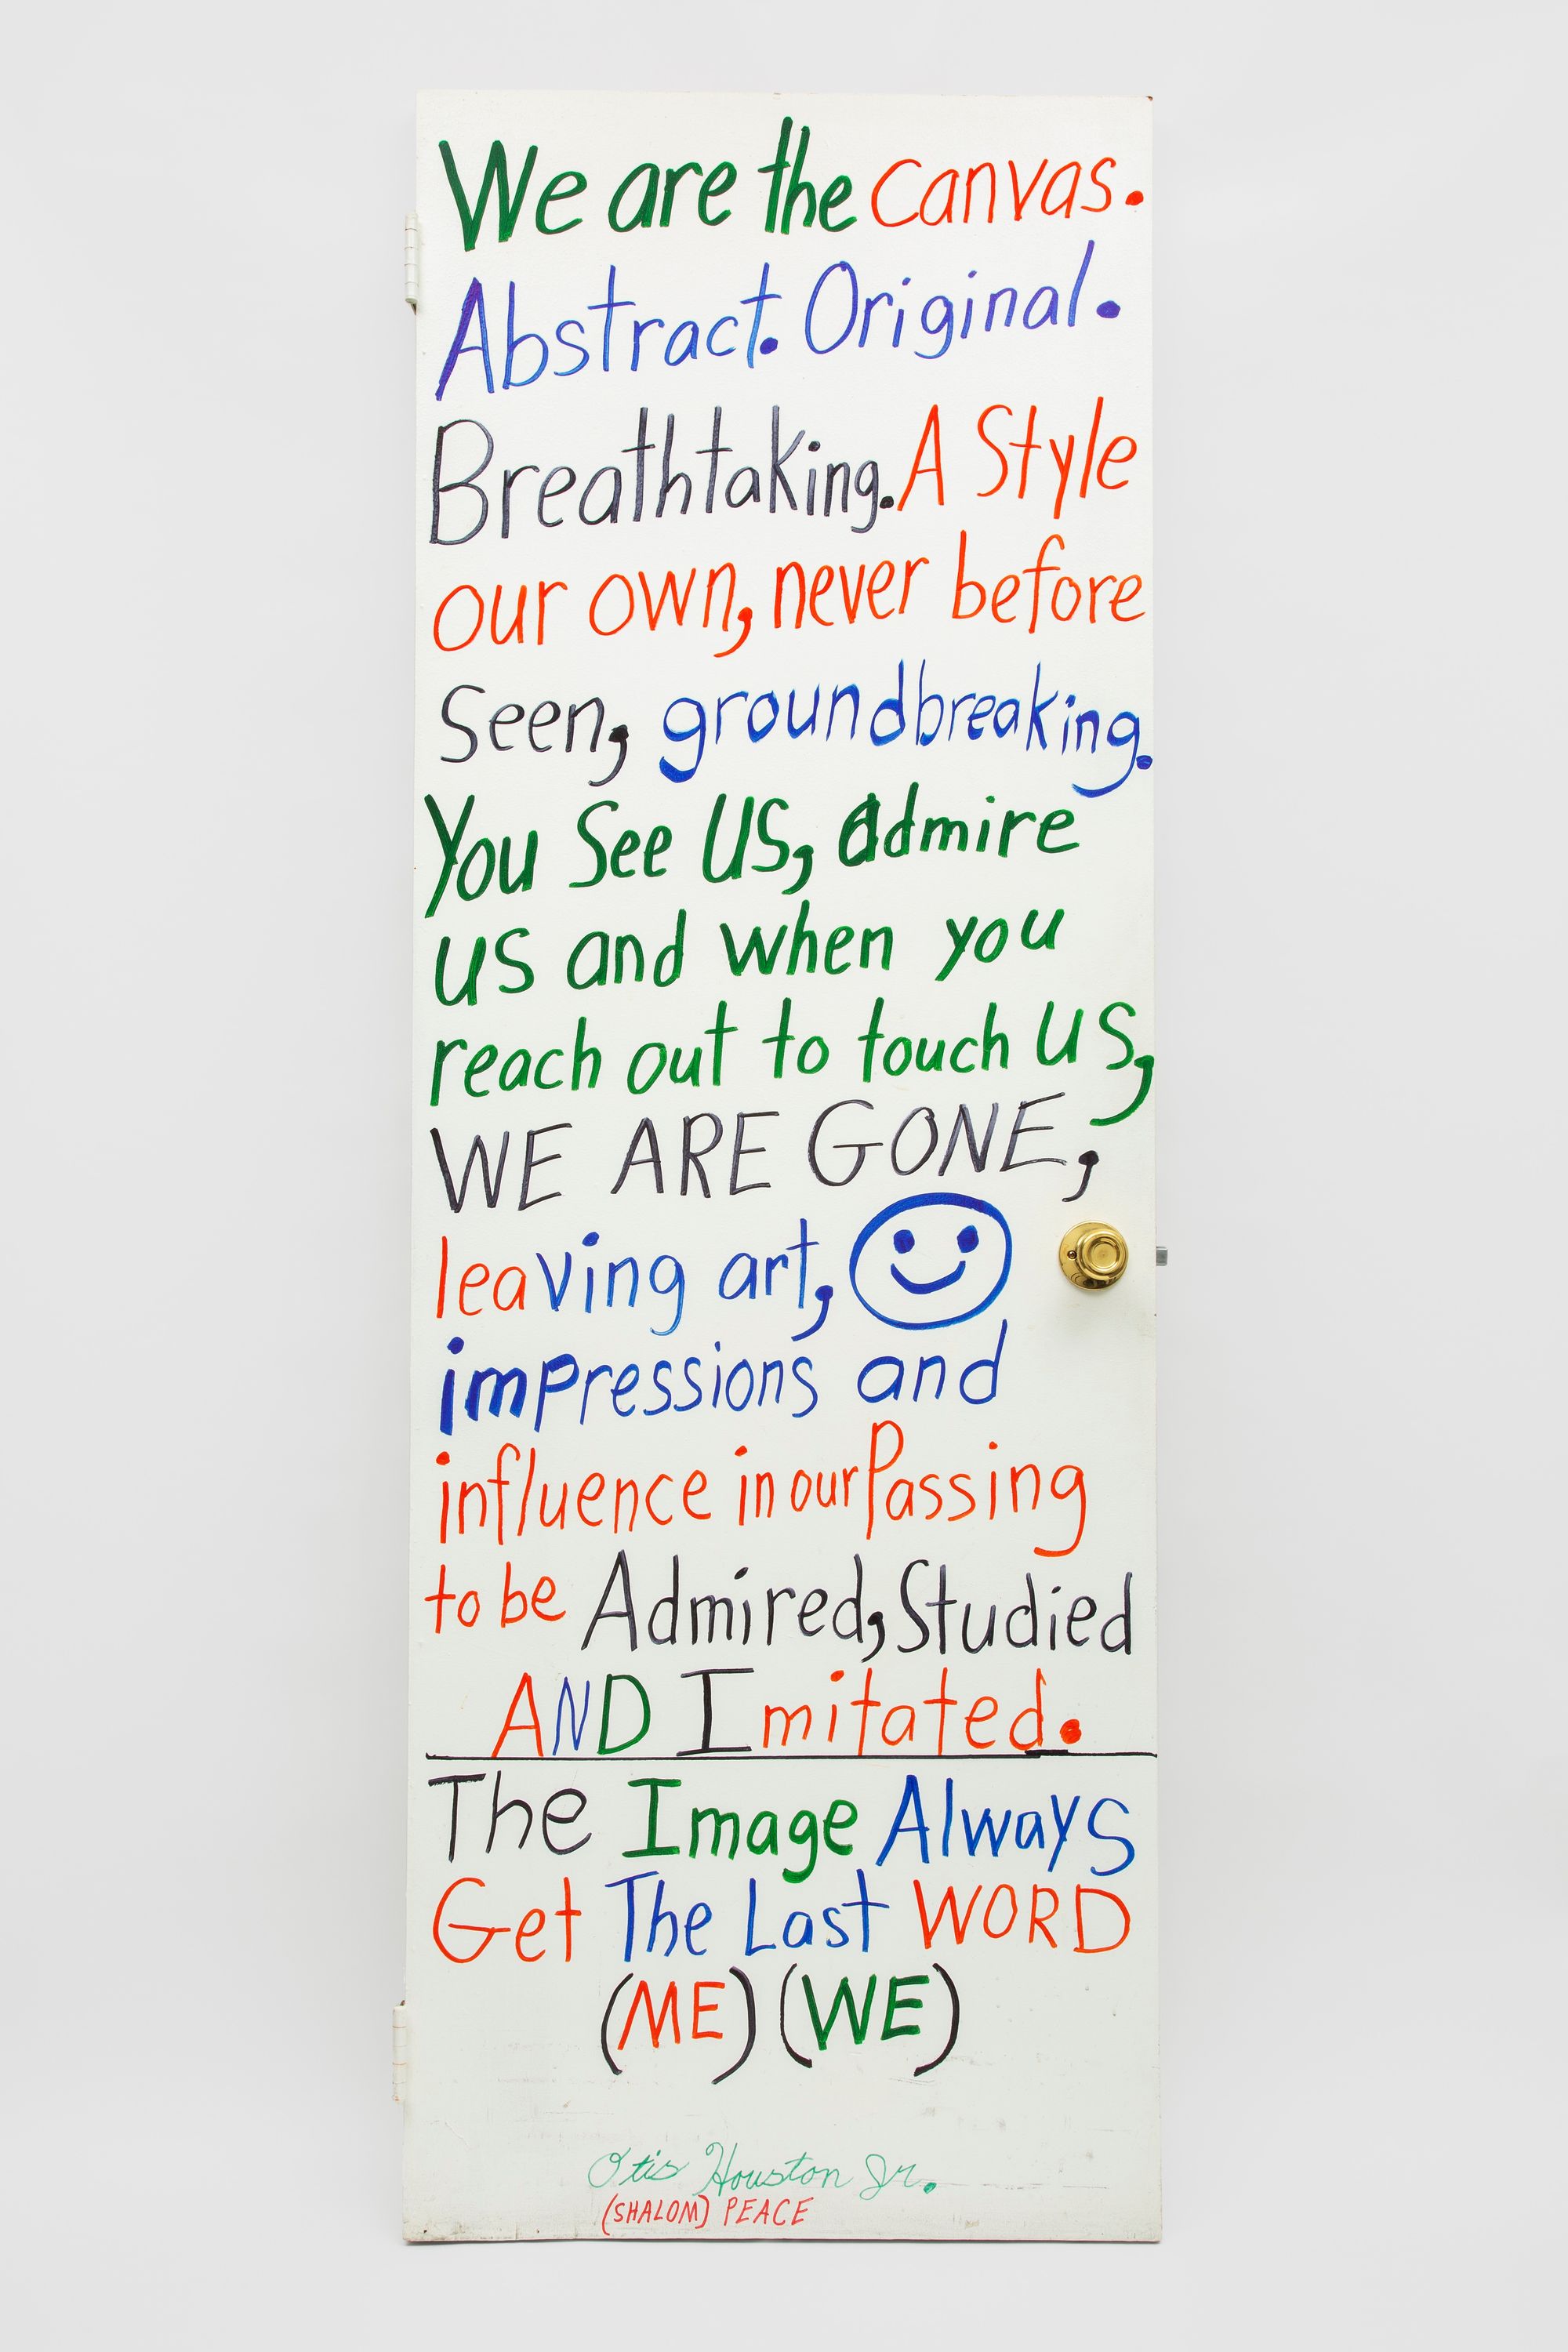 We are the canvas.
Abstract. Original.
Breathtaking. A Style
our own, never before
Seen, groundbreaking.
You See US, admire
us and when you
reach out to touch us,
WE ARE GONE,
leaving art,
impressions and
influence in our Passing
to be Admired, Studied
AND Imitated.
The Image Always
Get The Last WORD
(ME) (WE)
Otis Houston Jr.
(SHALOM) PEACE